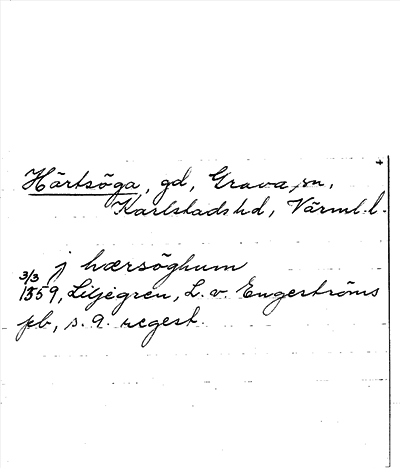 Härtsöga, gd, Grava sn,
Karlstads hd, Värml. l.
j hærsöghum
3/3
1359, Liljegren, L. v. Engeströms
pb, s. 9. regest.